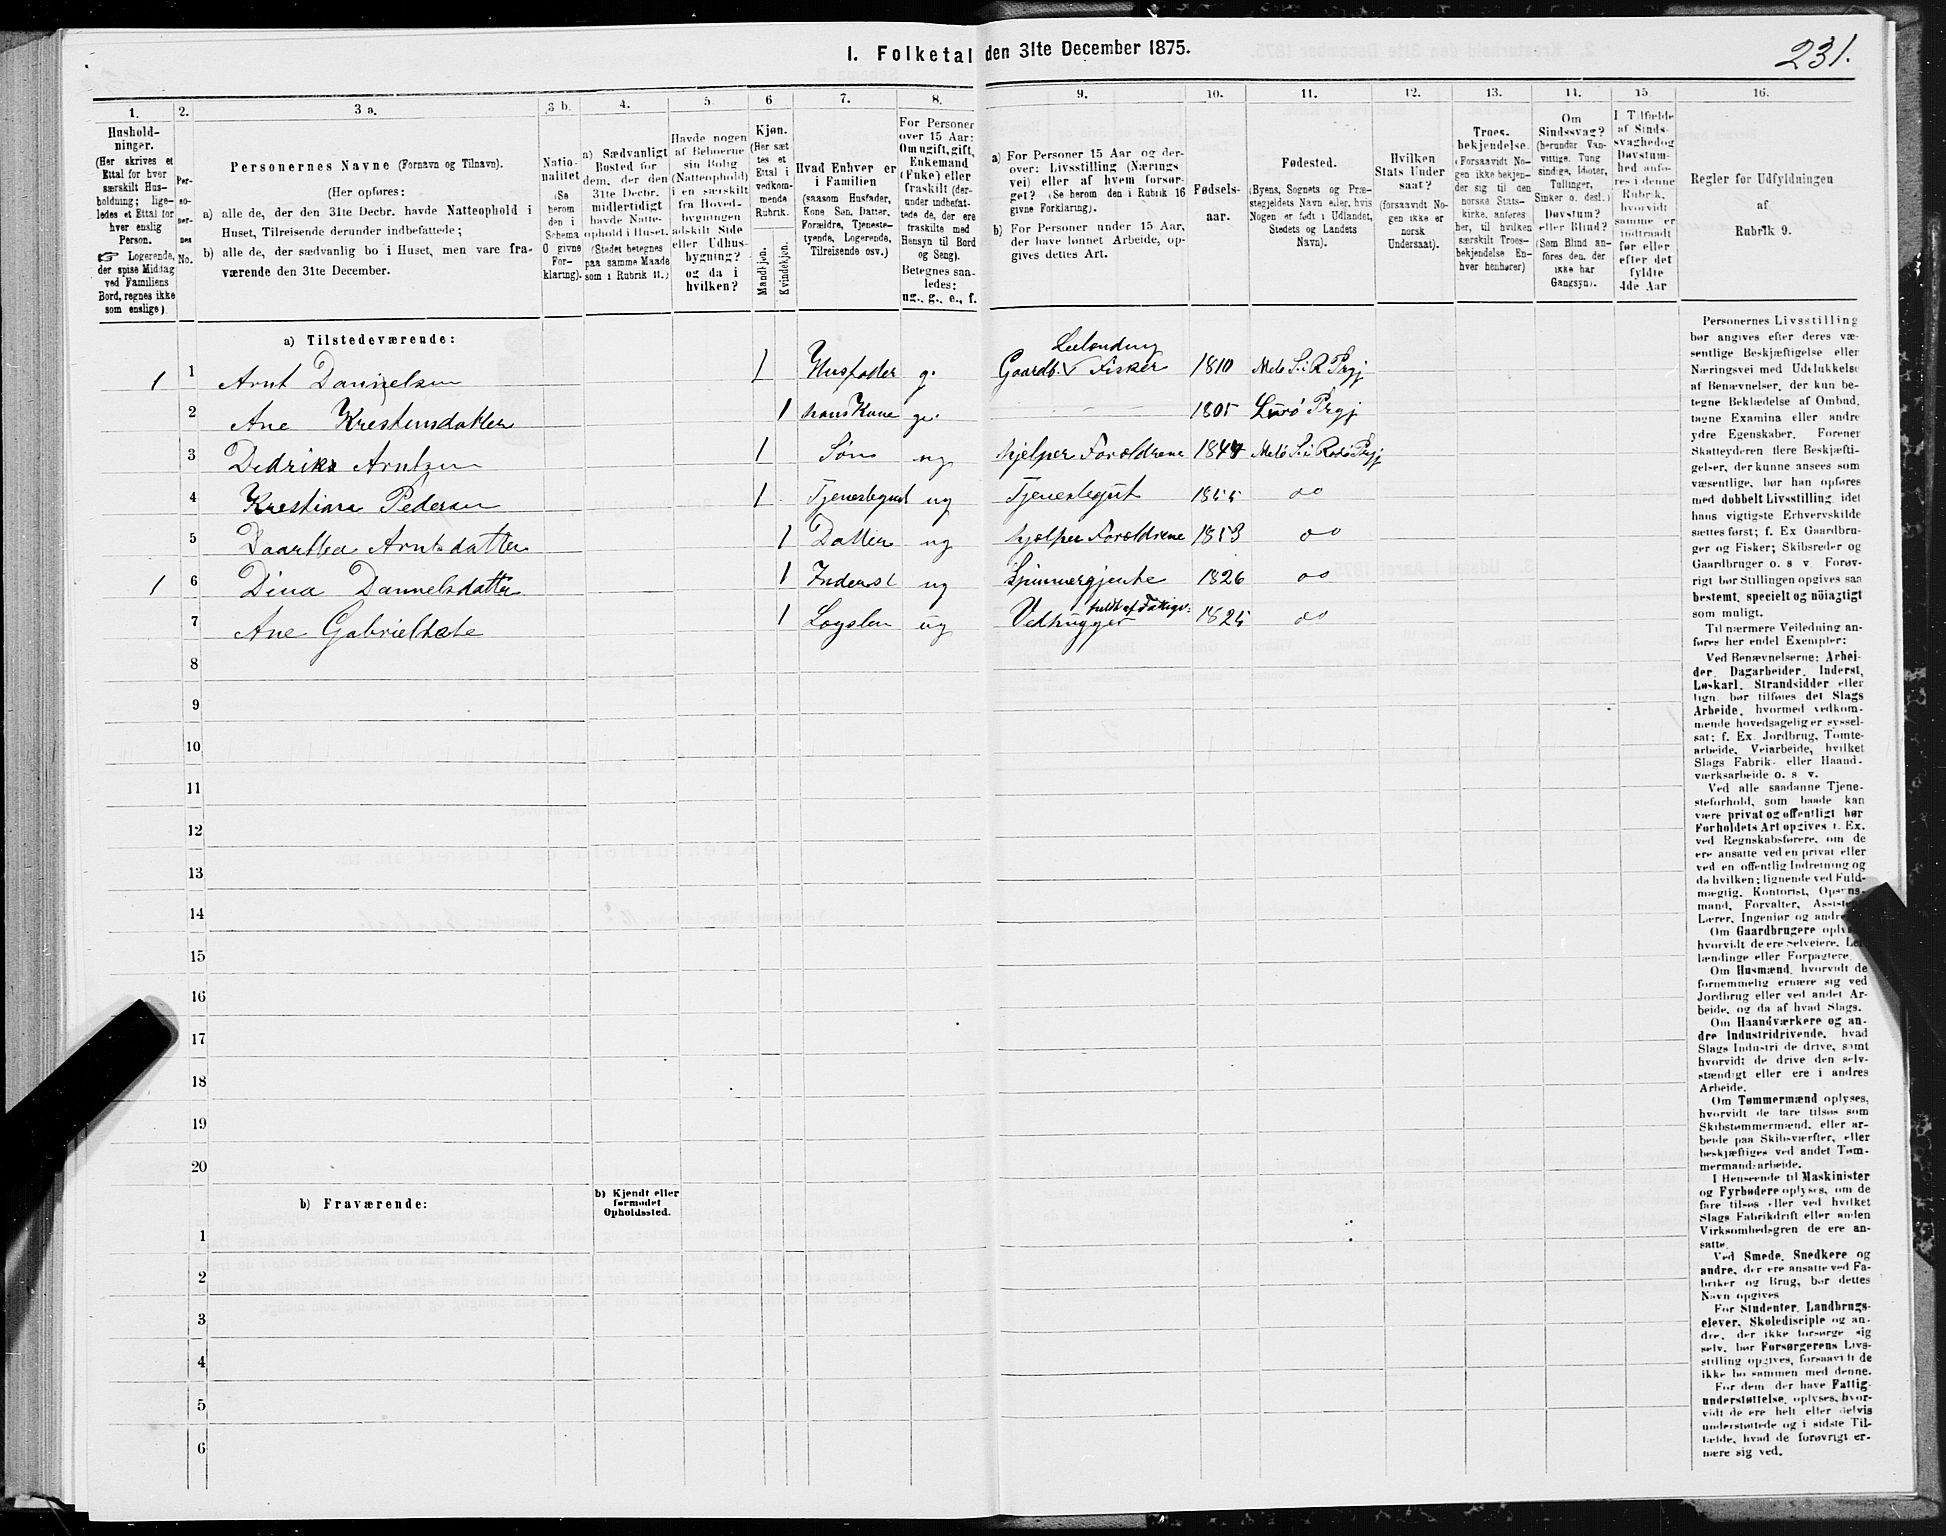 I. Folketal den 31te December 1875.
231.
1.
2.
3 a.
3 b.
4.
5.
6
7.
8.
9.
10.
11.
12.
13.
14.
15
16.
Hushold-
ninger.
(Her skrives et
Ettal for hver
særskilt Hus-
holdning; lige-
ledes et Ettal for
hver enslig
Person.
☞ Logerende,
der spise Middag
ved Familiens
Bord, regnes ikke
som enslige)
Per-
so-
ner-
nes
No.
Personernes Navne (Fornavn og Tilnavn).
(Her opføres:
a) alle de, der den 31te Decbr. havde Natteophold i
Huset, Tilreisende derunder indbefattede;
b) alle de, der sædvanlig bo i Huset, men vare fra-
værende den 31te December.
Natio-
nalitet
(Se
herom
den i
Schema
O givne
For-
klaring).
a) Sædvanligt
Bosted for
dem, der den
31te Decbr.
midlertidigt
havde Natte-
ophold i Huset.
(Stedet betegnes
paa samme Maade
som i Rubrik 11.)
Havde nogen
af Beboerne
sin Bolig
(Natteophold)
i en særskilt
fra Hoved-
bygningen
adskilt Side
eller Udhus-
bygning?
og da i
hvilken?
Kjøn.
(Her sæt
tes et
Ettal i
vedkom-
mende
Rubrik.
Mandkjøn.
Kvindekjøn.
Hvad Enhver er
i Familien
(saasom Husfader,
Kone Søn, Datter.
Forældre, Tjeneste-
tyende, Logerende,
Tilreisende osv.)
For Personer
over 15 Aar:
Om ugift, gift,
Enkemand
(Enke) eller
fraskilt (der-
under indbefat-
tede de, der ere
fraskilte med
Hensyn til Bord
og Seng).
Betegnes saa-
ledes:
ug., g., e., f.
a) For Personer 15 Aar og der-
over: Livsstilling (Nærings
vei) eller af hvem forsør-
get? (Se herom den i Rubrik 16
givne Forklaring).
b) For Personer under 15 Aar,
der have lønnet Arbeide, op-
gives dettes Art.
Fødsels-
aar.
Fødested.
(Byens, Sognets og Præ-
stegjeldets Navn eller, hvis
Nogen er født i Udlandet,
Stedets og Landets
Navn).
Hvilken
Stats Under
saat?
(forsaavidt No-
gen ikke er
norsk
Undersaat).
Troes-
bekjendelse.
(Forsaavidt No-
gen ikke bekjen-
der sig til den
norske Stats-
kirke, anføres
her, til hvilken
særskilt Troes-
bekjendelse En-
hver henhører)
Om
Sindssvag?
(herunder Van-
vittige, Tung
sindige, Idioter,
Tullinger,
Sinker o. desl.)
Døvstum?
eller Blind?
(Som Blind an-
føres den, der
ikke har
Gangsyn).
I Tilfælde
af Sinds-
svaghed og
Døvstum-
hed anfø-
res i denne
Rubrik,
hvorvidt
samme er
indtraadt
før eller
efter det
fyldte
4de Aar
Regler for Udfyldningen
af
Rubrik 9.
a) Tilstedeværende:
1 1 Arnt Dannelsen 1 Husfader g. Gaardb. V Leilænding Fisker 1810 Melø S. i R Prgj
2 Ane Krestensdatter 1 hans Kone g. 1805 Lurø Prgj
3 Dedriks Arntzen 1 Søn ug hjelper Forældrene 1844 Melø S. i Rødø Prgj
4 Krestian Pedersen 1 Tjenestegut ug Tjenestegut 1855 do
5 Daarthea Arntsdatter 1 Datter ug hjelper Forældrene 1853 do
1 6 Dina Dannelsdatter 1 Inderst ug Spinnergjente 1826 do
7 Ane Gabrielsdate 1 Logslem ug Vedhugger huldt af Fattigv: 1825 do
8
9
10
11
12
13
14
15
16
17
18
19
20
b) Fraværende:
b) Kjendt eller
formodet
Opholdssted.
1
2
3
4
5
6
Personernes Livsstilling
bør angives efter deres væ-
sentlige Beskjæftigelse eller
Næringsvei med Udelukkelse
af Benævnelser, der kun be-
tegne Beklædelse af Ombud,
tagne Examina eller andre
ydre Egenskaber. Forener
Skatteyderen flere Beskjæfti-
gelser, der kunne ansees som
væsentlige, bør han opføres
med dobbelt Livsstilling, idet
hans vigtigste Erhvervskilde
sættes først; f. Ex Gaardbru-
ger og Fisker; Skibsreder og
Gaardbruger o. s v Forøv-
rigt bør Stillingen opgives saa
bestemt, specielt og nöiagtigt
som muligt.
Til nærmere Veiledning an-
føres her endel Exempler:
Ved Benævnelserne: Arbei-
der, Dagarbeider, Inderst,
Løskarl, Strandsidder eller
lign. bør tilføies det Slags
Arbeide, hvormed vedkom-
mende hovedsagelig er syssel-
sat; f. Ex. Jordbrug, Tomte-
arbeide, Veiarbeide, hvilket
Slags Fabrik- eller Haand-
værksarbeide o. s v.
Ved alle saadanne Tjene-
steforhold, som baade kan
være privat og offentligt bør
Forholdets Art opgives f. Ex.
ved Regnskabsførere, om de
ere ansatte ved en privat eller
ved en offentlig Indretning og
da hvilken; lignende ved Fuld-
mægtig, Kontorist, Opsyns-
mand, Forvalter, Assistent,
Lærer, Ingeniør og andre.
Om Gaardbrugere oplyses,
hvorvidt de ere Selveiere, Lei-
lændinge eller Forpagtere.
Om Husmænd, hvorvidt de
fornemmelig ernære sig ved
Jordbrug eller ved andet Ar-
beide, og da af hvad Slags.
Om Haandværkere og an-
dre Industridrivende, hvad
Slags Industri de drive, samt
hvorvidt de drive den selv-
stændigt eller ere i andres
Arbeide.
Om Tømmermænd oplyses,
hvorvidt de fare tilsøs som
Skibstømmermænd, eller ar-
beide paa Skibsværfter, eller
beskjæftiges ved andet Tøm-
mermandsarbeide.
I Henseende til Maskinister
og Fyrbødere oplyses, om de
fare tilsøs eller ved hvilket
Slags Fabrikdrift eller anden
Virksomhedsgren de ere an-
satte.
Ved Smede, Snedkere og
andre, der ere ansatte ved Fa-
briker og Brug, bør dettes
Navn opgives
For Studenter, Landbrugs-
elever, Skoledisciple og an-
dre, der ikke forsørge sig
selv, bør Forsørgerens Livs-
stilling opgives, forsaavidt de
ikke bo sammen med denne.
For dem, der have Fattig-
understøttelse, oplyses, hvor-
vidt de ere helt eller delvis
understøttede og i sidste Til-
fælde, hvad de forøvrigt er-
nære sig ved.